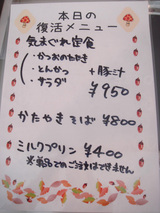 本日の
復活メニュー
気まぐれ定食
・かつおのたたき
・とんかつ
・サラダ
+豚汁
¥950
かたやきそば ¥800
ミルクプリン ¥400
※単品でのご注文はできません